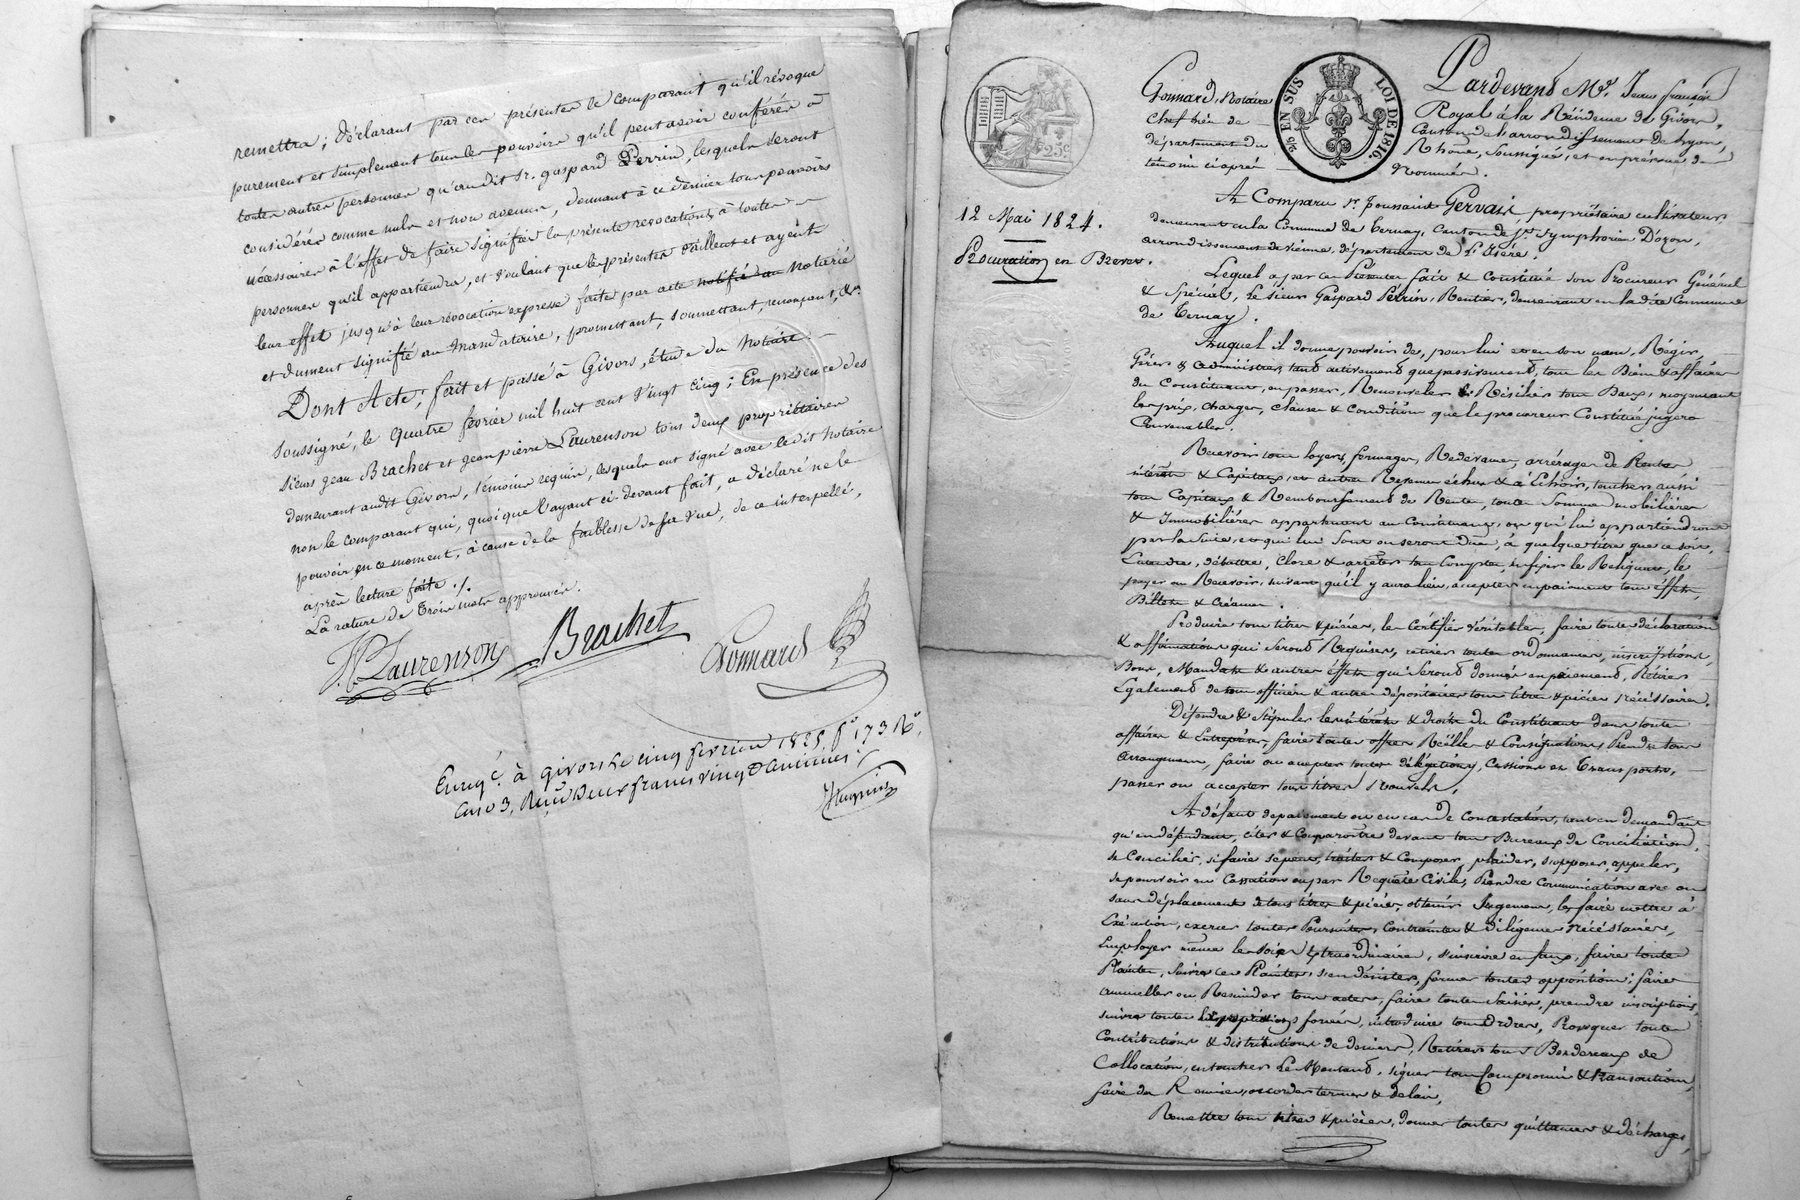 remettra; déclarant par ces présentes le comparant qu'il révoque
purement et simplement tous les pouvoirs qu'il peut avoir conférés à
toutes autres personnes qu'au dit Sr. gaspard Perrin, lesquels seront
considérés comme nuls et non avenus, donnant à ce dernier tous pouvoirs
nécessaires à l'effet de faire signifier la présente révocation à toutes
personnes qu'il appartiendra, et voulant que les présentes vaillent et ayent
leur effet jusqu'à leur révocation expresse faite par acte notifié au notarié
et dument signifié au mandataire, promettant, soumettant, renonçant, &a.
Dont Acte, fait et passé à Givors, étude du Notaire
soussigné, le quatre février mil huit cent vingt cinq; En présence des
sieurs Jean Brachet et Jean pierre Laurenson tous deux propriétaires
demeurant audit Givors, témoins requis, lesquels ont signé avec le dit notaire
non le comparant qui, quoique l'ayant ci-devant fait, a déclaré ne le
pouvoir en ce moment, à cause de la faiblesse de sa vue, de ce interpellé,
après lecture faite ./.
La rature de trois mots approuvée.
J.P. Laurenson Brachet Gonnard
Enregé. à givors le cinq février 1825, fo. 173 Ro.
Case 3, Reçu deux francs vingt centimes
2/10 EN SUS LOI DE 1816.
25c
12 Mai 1824.
Procuration en Brevet.
Pardevant Me. Jean François
Gonnard, Notaire Royal à la Résidence de Givors,
Chef lieu de Canton de l'arrondissement de Lyon,
département du Rhône, Soussigné, et en présence des
témoins ci après Nommés.
A Comparu Sr. Toussaint Gervais, propriétaire cultivateur
demeurant en la Commune de Ternay, Canton de St. Symphorien D'ozon,
arrondissement de Vienne, département de L'Isère.
Lequel a par ces Présentes fait & Constitué son Procureur Général
& Spécial, Le sieur Gaspard Perrin, Rentier, demeurant en la dite Commune
de Ternay.
Auquel il donne pouvoir de, pour lui et en son nom, Régir,
Gérer & administrer, tant activement que passivement, tous les Biens & affaires
du Constituant, en passer, Renouveler & Résilier tous Baux, moyennant
les prix, charges, clauses & conditions que le procureur Constitué jugera
Convenables.
Recevoir tous loyers, fermages, Redevances, arrérages de Rentes
intérêts & Capitaux, et autres Revenus échus & à Echoir, toucher aussi
tous Capitaux & Remboursements de Rentes, toutes Sommes mobilières
& Immobilières appartenant au Constituant, ou qui lui appartiendront
par la suite, et qui lui Sont ou seront dues, à quelque titre que ce soit,
Entendre, débattre, Clore & arrêter tous Comptes, en fixer le Reliquat, le
payer ou Recevoir, suivant qu'il y aura lieu, accepter en paiement tous effets,
Billets & Créances.
Produire tous titres & pièces, les Certifier véritables, faire toutes déclarations
& affirmations qui Seront Requises, retirer toutes ordonnances, inscriptions,
Bons, Mandats & autres effets qui Seront donnés en paiement, Retirer
Egalement de tous officiers & autres dépositaires tous titres & pièces nécessaires.
Défendre & Stipuler les intérêts & droits du Constituant dans toutes
affaires & Entreprises, faire toutes offres Réelles & Consignations, Prendre tous
arrangemens, faire ou accepter toutes délégations, Cessions et Transports,
passer ou accepter tous titres Nouvels.
A défaut de paiement ou en cas de Contestations, tant en demandant
qu'en défendant, citer & Comparoître devant tous Bureaux de Conciliation,
se Concilier, si faire se peut, traiter & Composer, plaider, s'opposer, appeler,
se pourvoir en Cassation ou par Requête Civile, Prendre communication avec ou
sans déplacement de tous titres & pièces, obtenir Jugemens, les faire mettre à
Exécution, exercer toutes Poursuites, contraintes & diligences nécessaires,
Employer même les voies Extraordinaires, s'inscrire en faux, faire toutes
Plaintes, suivre ces Plaintes, s'en désister, former toutes oppositions; faire
annuller ou Rescinder tous actes, faire toutes Saisies, prendre inscriptions,
suivre toutes Expropriations forcées, introduire tous Ordres, Provoquer toutes
Contributions & distributions de deniers, Retirer tous Bordereaux de
Collocation, en toucher Le Montant, signer tous Compromis & transactions,
faire des Remises, accorder termes & délais,
Remettre tous titres & pièces, donner toutes quittances & décharges,